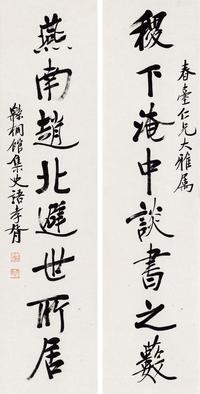 春臺仁兄大雅屬
稷下淹中談書之藪
燕南趙北避世所居
集史語孝胥